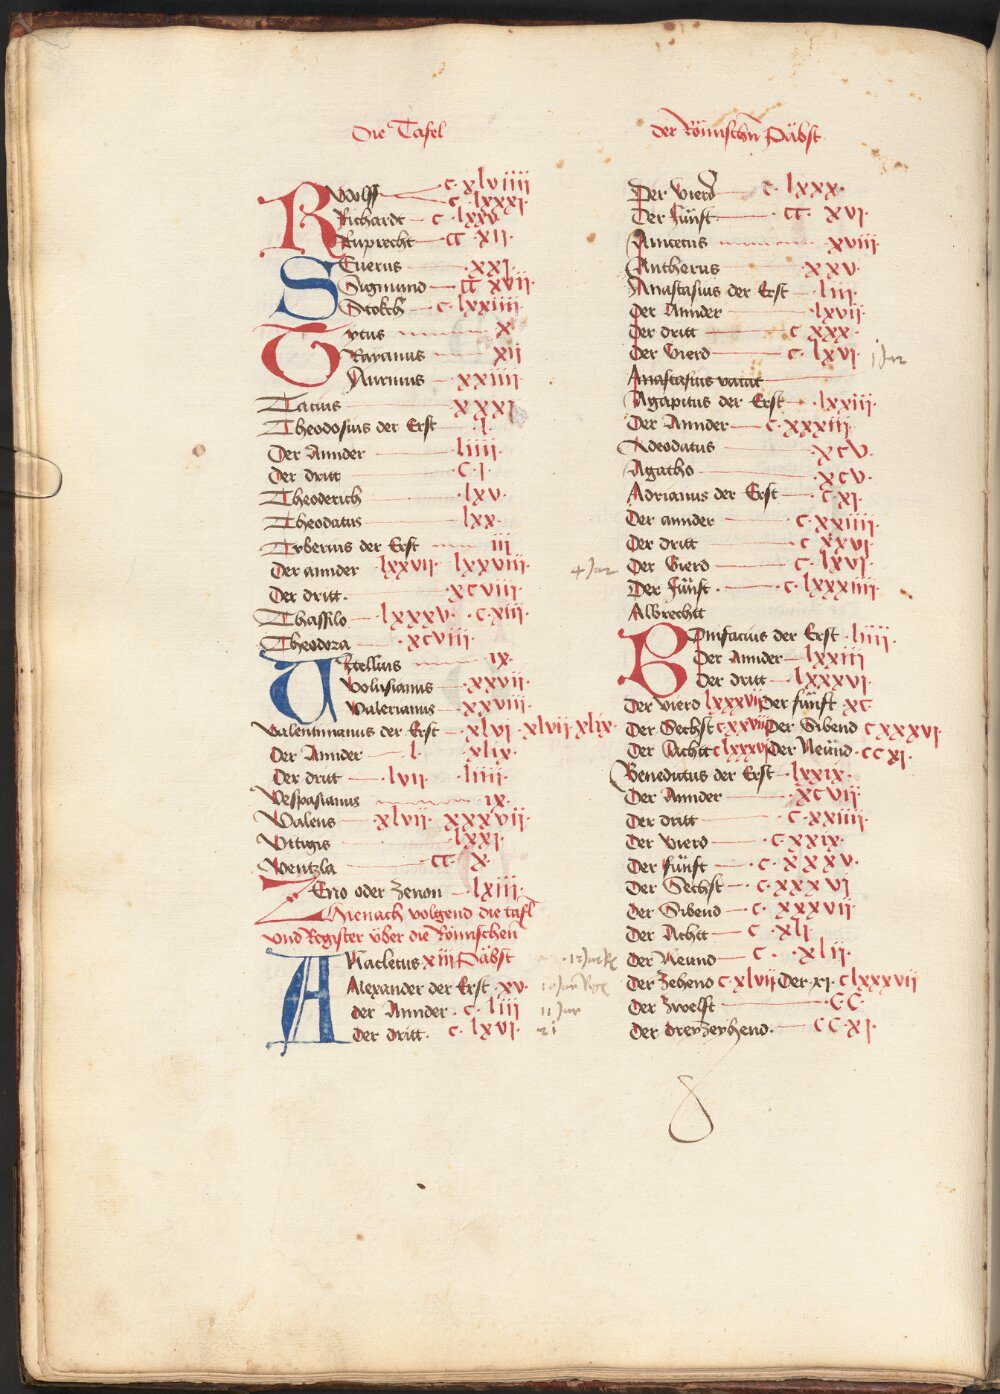 Die Tafel
Rudolff c. xlviiii
c. lxxxi
Richardt c. lxxv
Ruprecht cc xii
SEuerus xxi
Sigmund cc xvii
Stokch c. lxxiiii
Tytus x
Traianus xii
Taurinus xxiiii
Tacius xxxi
Theodosius der Erst l
Der Annder liiii
Der dritt c. i
Theoderich lxv
Theodatus lxx
Tyberius der Erst iii
Der annder lxxvii lxxviii
Der dritt xcviii
Thassilo lxxxv c. xiii
Theodora xcviii
Vitellius ix
Volusianus xxvii
Valerianus xxviii
Valentinianus der Erst xlvi xlvii xlix
Der Annder l xlix
Der dritt lvii liiii
Vespasianus ix
Valens xlvii xxxvii
Vitigis lxxi
Wentzla cc x
ZEno oder Zenon lxiii
Hienach volgend die tafl
und Register über die Römischen
ANacletus xiii Päbst
Alexander der Erst xv
der Annder c. liii 11 Jar
Der dritt c. lxvi 21
der Römischn Päbst
Der vierd c. lxxx
Der fünft cc xvi
Anicetus xviii
Antherus xxv
Anastasius der Erst liii
Der Annder lxvii
Der dritt c xxx
Der Vierd c. lxvi 1 Jar
Anastasius vacat
Agapitus der Erst lxxiii
Der Annder c. xxxiii
Adeodatus xcv
Agatho xcv
Adrianus der Erst c. xi
Der annder c. xxiiii
Der dritt c xxvi
4 Jar Der Vierd c. lxvi
Der fünft c. lxxxiiii
Albrechtt
BOnifacius der Erst liiii
Der Annder lxxiii
Der dritt lxxxvi
Der vierd lxxxvii Der fünft xc
Der Sechst c xxviii Der Sibend c xxxvi
Der Achtt c lxxxvi Der Neünd cc xi
Benedictus der Erst lxxix
Der Annder xcvii
Der dritt c. xxiiii
Der vierd c. xxix
Der fünft c. xxxv
Der Sechst c. xxxvi
Der Sibend c. xxxvii
Der Achtt c xli
Der Neund c. xlii
Der Zehend c xlvii Der xi c lxxxvii
Der Zwelft CC
Der dreyzehend CC xi